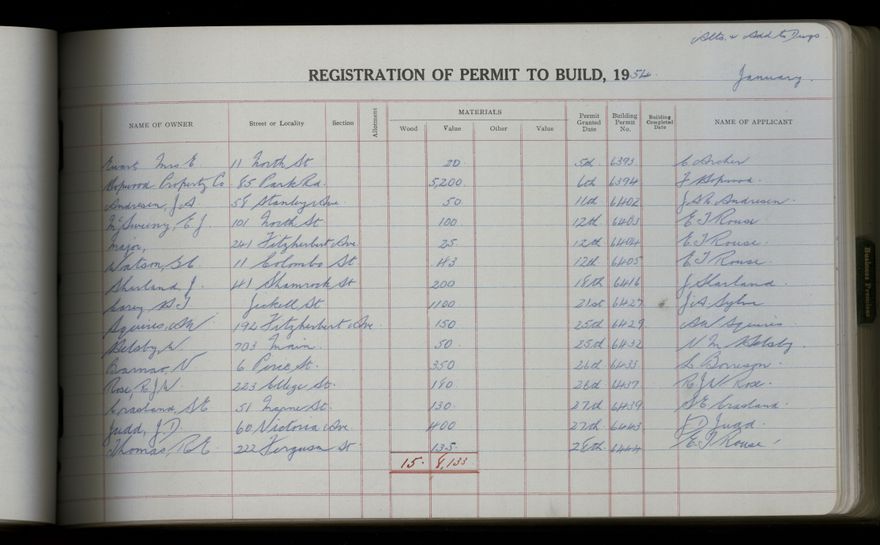 Alts. & Add to Dwgs
REGISTRATION OF PERMIT TO BUILD, 1954.
January.
NAME OF OWNER Street or Locality Section Allotment MATERIALS Permit Granted Date Building Permit No. Building Completed Date NAME OF APPLICANT
Wood Value Other Value
Ewart Mrs E. 11 North St 20 5th 6393 C Archer
Hopwood Property Co 85 Park Rd. 5,200 6th 6394 F Hopwood.
Andresen, J.A. 58 Stanley Ave 50 11th 6402 J A Andresen.
McSweeny, E J. 101 North St. 100 12th 6403 E J Rouse
Major, 241 Fitzherbert Ave. 25 12th 6404 E J Rouse.
Watson, 11 Colombo St 43 12th 6405 E J Rouse.
Sharland J. 41 Shamrock St 200 18th 6416 J Sharland
Carey Jickell St. 1100 21st 6427 J A Sylva
Squires, 192 Fitzherbert Ave. 150 25th 6429 Squires.
Kelsby, 703 Main. 50 25th 6432 N M Kelsby.
N 6 Peree St. 350 26th 6435
Rose, R J W. 223 College St. 180 26th 6437 R J W Rose.
Crosland, S E 51 Mayne St. 130. 27th 6439 S E Crosland.
Judd, J D. 60 Victoria Ave. 400 27th 6443 J D Judd.
Thomas, R E. 222 Ferguson St 135. 28th 6444 E J Rouse.
15. 8,133